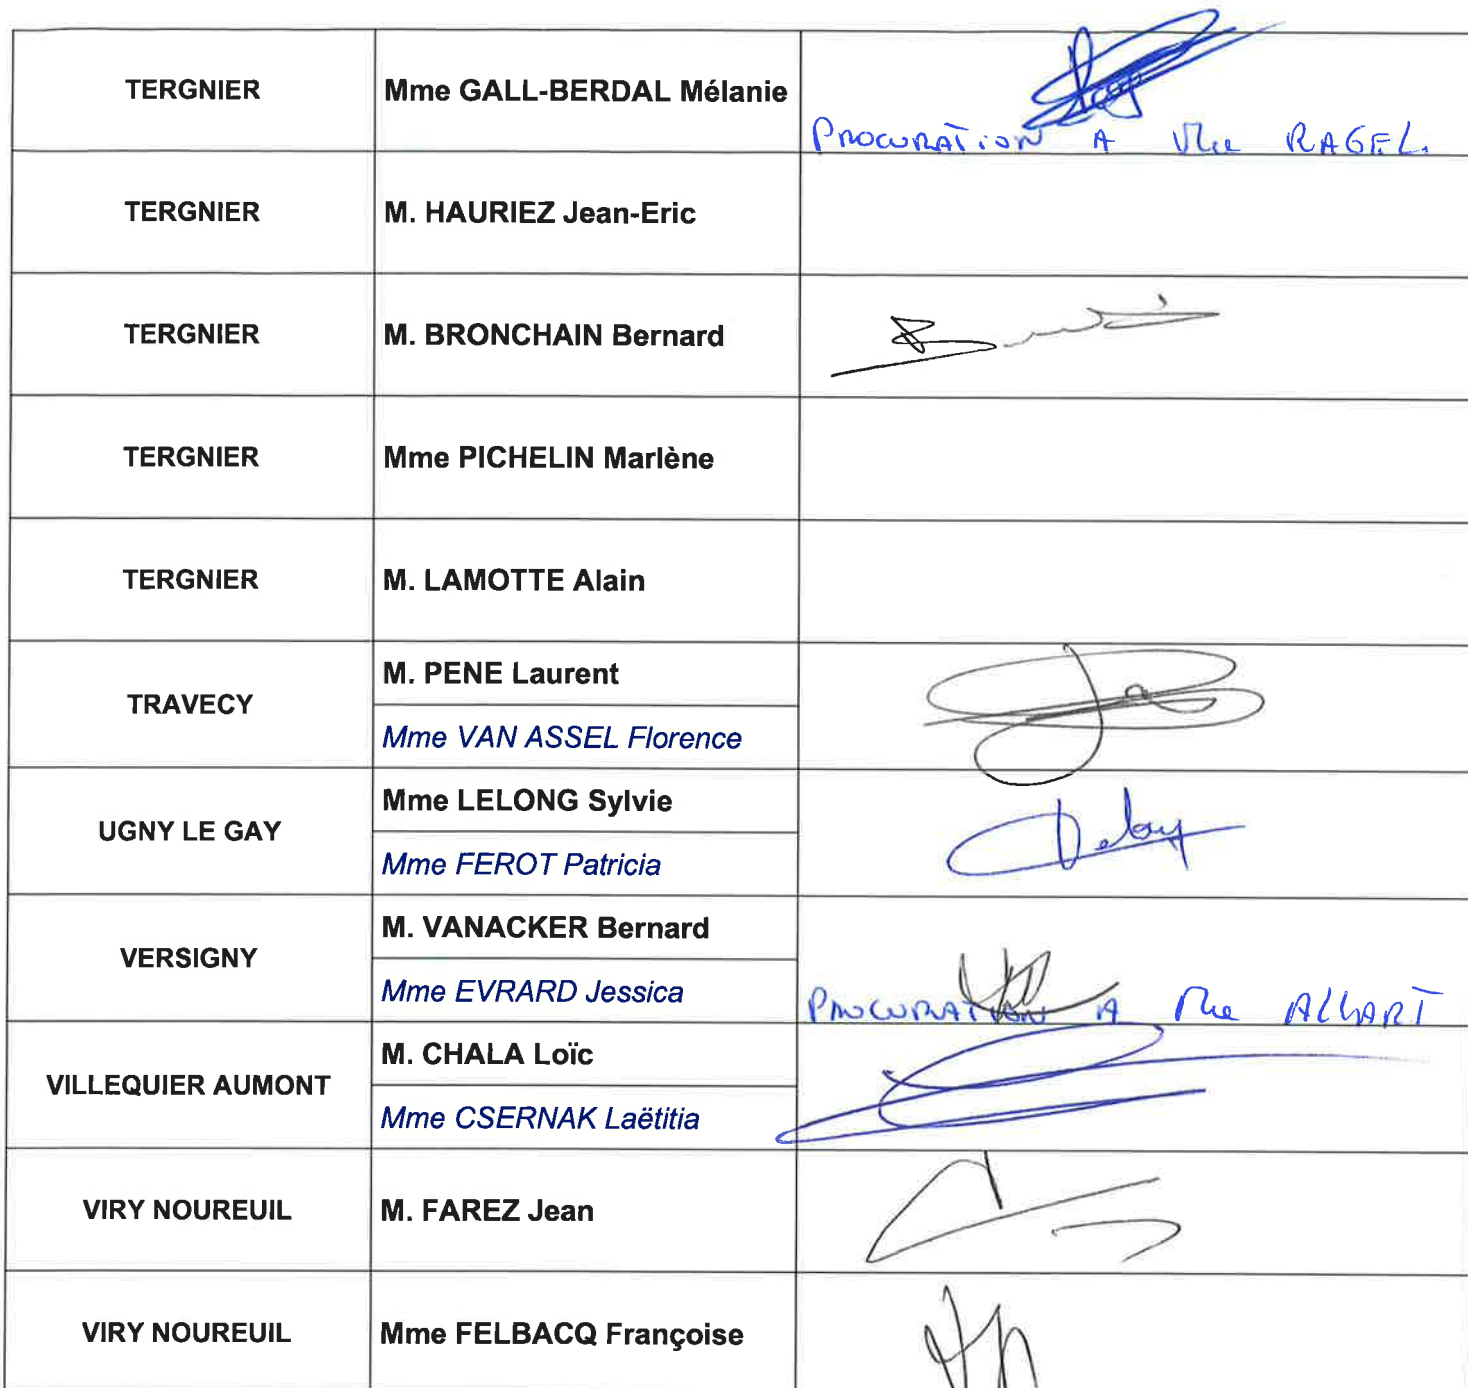 TERGNIER Mme GALL-BERDAL Mélanie
PROCURATION A Mme RAGEL.
TERGNIER M. HAURIEZ Jean-Eric
TERGNIER M. BRONCHAIN Bernard
TERGNIER Mme PICHELIN Marlène
TERGNIER M. LAMOTTE Alain
TRAVECY
M. PENE Laurent
Mme VAN ASSEL Florence
UGNY LE GAY
Mme LELONG Sylvie
Mme FEROT Patricia
VERSIGNY
M. VANACKER Bernard
Mme EVRARD Jessica
PROCURATION A Mme ALLART
VILLEQUIER AUMONT
M. CHALA Loïc
Mme CSERNAK Laëtitia
VIRY NOUREUIL M. FAREZ Jean
VIRY NOUREUIL Mme FELBACQ Françoise